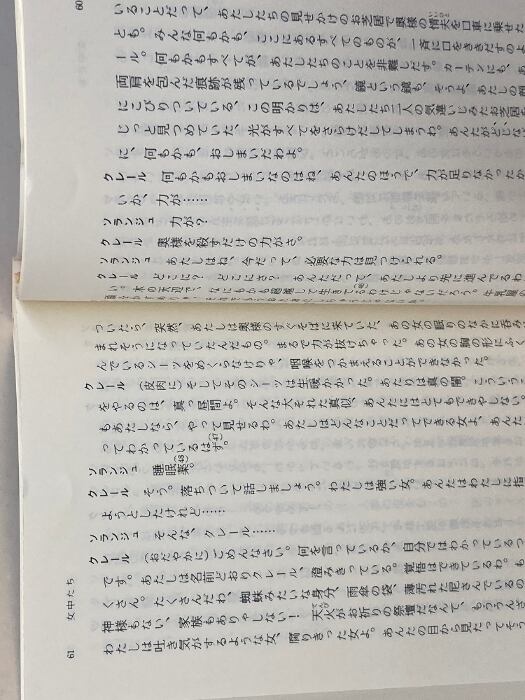 60
いることだって、あたしたちの見せかけのお芝居で奥様の情夫を口車に乗せた
とも。みんな何もかも、ここにあるすべてのものが、一斉に口をきききだすのよ
ール。何もかもすべてが、あたしたちのことを非難しだす。カーテンにも、あ
両肩を包んだ痕跡が残っているでしょう、鏡という鏡も、そうよ、あたしの顔
にこびりついている、この明かりは、あたしたち二人の気違いじみたお芝居を
じっと見つめていた、光がすべてをさらけだしてしまうわ。あんたがどじな
に、何もかも、おしまいだわよ。
クレール　何もかもおしまいなのはね、あんたのほうで、力が足りなかったか
いか、力が……
ソランジュ　力が？
クレール　奥様を殺すだけの力がさ。
ソランジュ　あたしはね、今だって、必要な力は見つけられる。
クレール　どこに？　どこにさ？　あんただって、あたしより先に進んでるわ
ついたら、突然、あたしは奥様のすぐそばに来ていた、あの女の眠りのなかに呑み
まれそうになっていたんだもの。まるで力が抜けちゃった。あの女の胸の形にふく
んでいるシーツをめくらなけりゃ、咽喉をつかまえることができなかった。
クレール　（皮肉に）そしてそのシーツは生暖かかった。あたりは真の闇。こういう
をやるのは、真っ昼間よ。そんな大それた真似、あんたにはとてもできやしない。
もあたしなら、やって見せるわ。あたしはどんなことだってできる女よ、あんた
ってわかっているはず。
ソランジュ　睡眠薬。
クレール　そう。落ちついて話しましょう。わたしは強い女。あんたはわたしに指
ようとしたけれど……
ソランジュ　そんな、クレール……
クレール　（おだやかに）ごめんなさい。何を言っているか、自分ではわかっているつ
です。あたしは名前どおりクレール、澄みきっている。覚悟はできているわ。も
くさん。たくさんだわ、蜘蛛みたいな身分、雨傘の袋、薄汚れた尼さんているの
神様もない、家族もありゃしない！　天火がお祈りの祭壇だなんて、もううんざ
わたしは吐き気がするような女、腐りきった女よ。あんたの目から見たってそう
61　女中たち